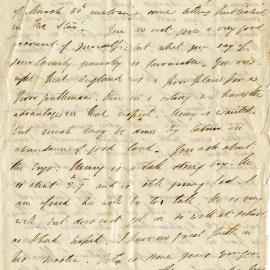 of March 30th enclosing some letters published
in the Star. You do not give a very good
account of yourself but what you say of
your family generally is favourable. You are
right that England is a poor place for a
poor gentleman. Even in a colony we have the
advantage in that respect. Money is wanted
but much may be done by labour in
abundance of good land. You ask about
the boys. Henry is a tall strong boy. He
is about 5.7 and is still growing but I
am afraid he will be too tall. He is very
well, but does not get on so well at school
as I had hoped. I have no great faith in
his master. Otto is nine years younger